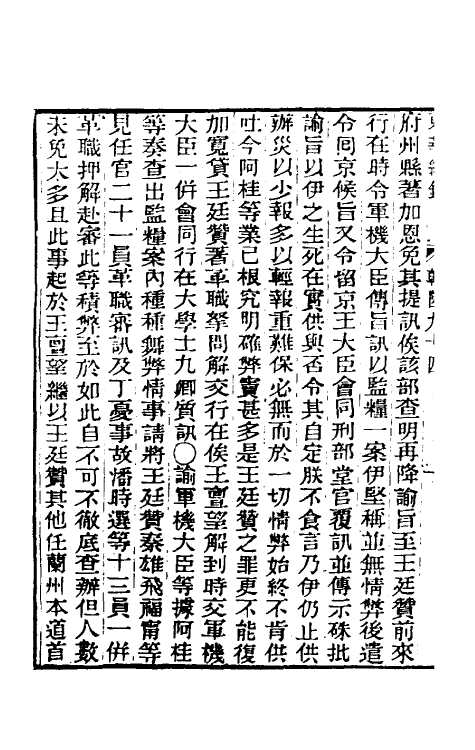 府州縣著加恩免其提訊俟該部查明再降諭旨至王廷贊前來
行在時令軍機大臣傳旨訊以監糧一案伊堅稱並無情弊後遣
令囘京候旨又令留京王大臣會同刑部堂官覆訊並傳示硃批
諭旨以伊之生死在實供與否令其自定朕不食言乃伊仍止供
辦災以少報多以輕報重難保必無而於一切情弊始終不肯供
吐今阿桂等業已根究明確弊竇甚多是王廷贊之罪更不能復
加寬貸王廷贊著革職拏問解交行在俟王亶望解到時交軍機
大臣一併會同行在大學士九卿質訊〇諭軍機大臣等據阿桂
等奏查出監糧案內種種舞弊情事請將王廷贊秦雄飛福甯等
見任官二十一員革職審訊及丁憂事故潘時選等十三員一併
革職押解赴審此等積弊至於如此自不可不徹底查辦但人數
未免太多且此事起於王亶望繼以王廷贊其他任蘭州本道首